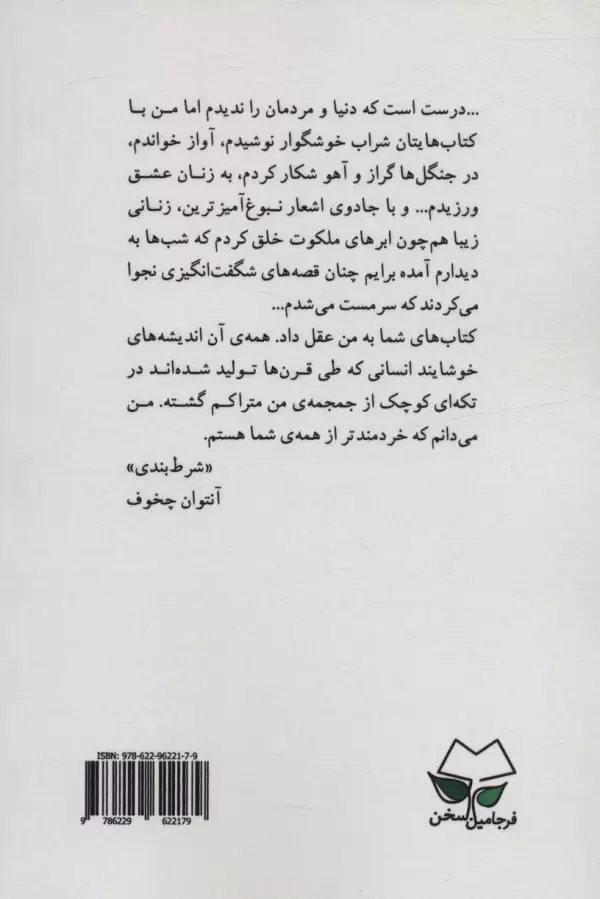 ...درست است که دنیا و مردمان را ندیدم اما من با
کتاب‌هایتان شراب خوشگوار نوشیدم، آواز خواندم،
در جنگل‌ها گراز و آهو شکار کردم، به زنان عشق
ورزیدم... و با جادوی اشعار نبوغ‌آمیزترین، زنانی
زیبا هم‌چون ابرهای ملکوت خلق کردم که شب‌ها به
دیدارم آمده برایم چنان قصه‌های شگفت‌انگیزی نجوا
می‌کردند که سرمست می‌شدم...
کتاب‌های شما به من عقل داد. همه‌ی آن اندیشه‌های
خوشایند انسانی که طی قرن‌ها تولید شده‌اند در
تکه‌ای کوچک از جمجمه‌ی من متراکم گشته. من
می‌دانم که خردمندتر از همه‌ی شما هستم.
«شرط‌بندی»
آنتوان چخوف
ISBN: 978-622-96221-7-9
9 786229 622179
فرجامین سخن